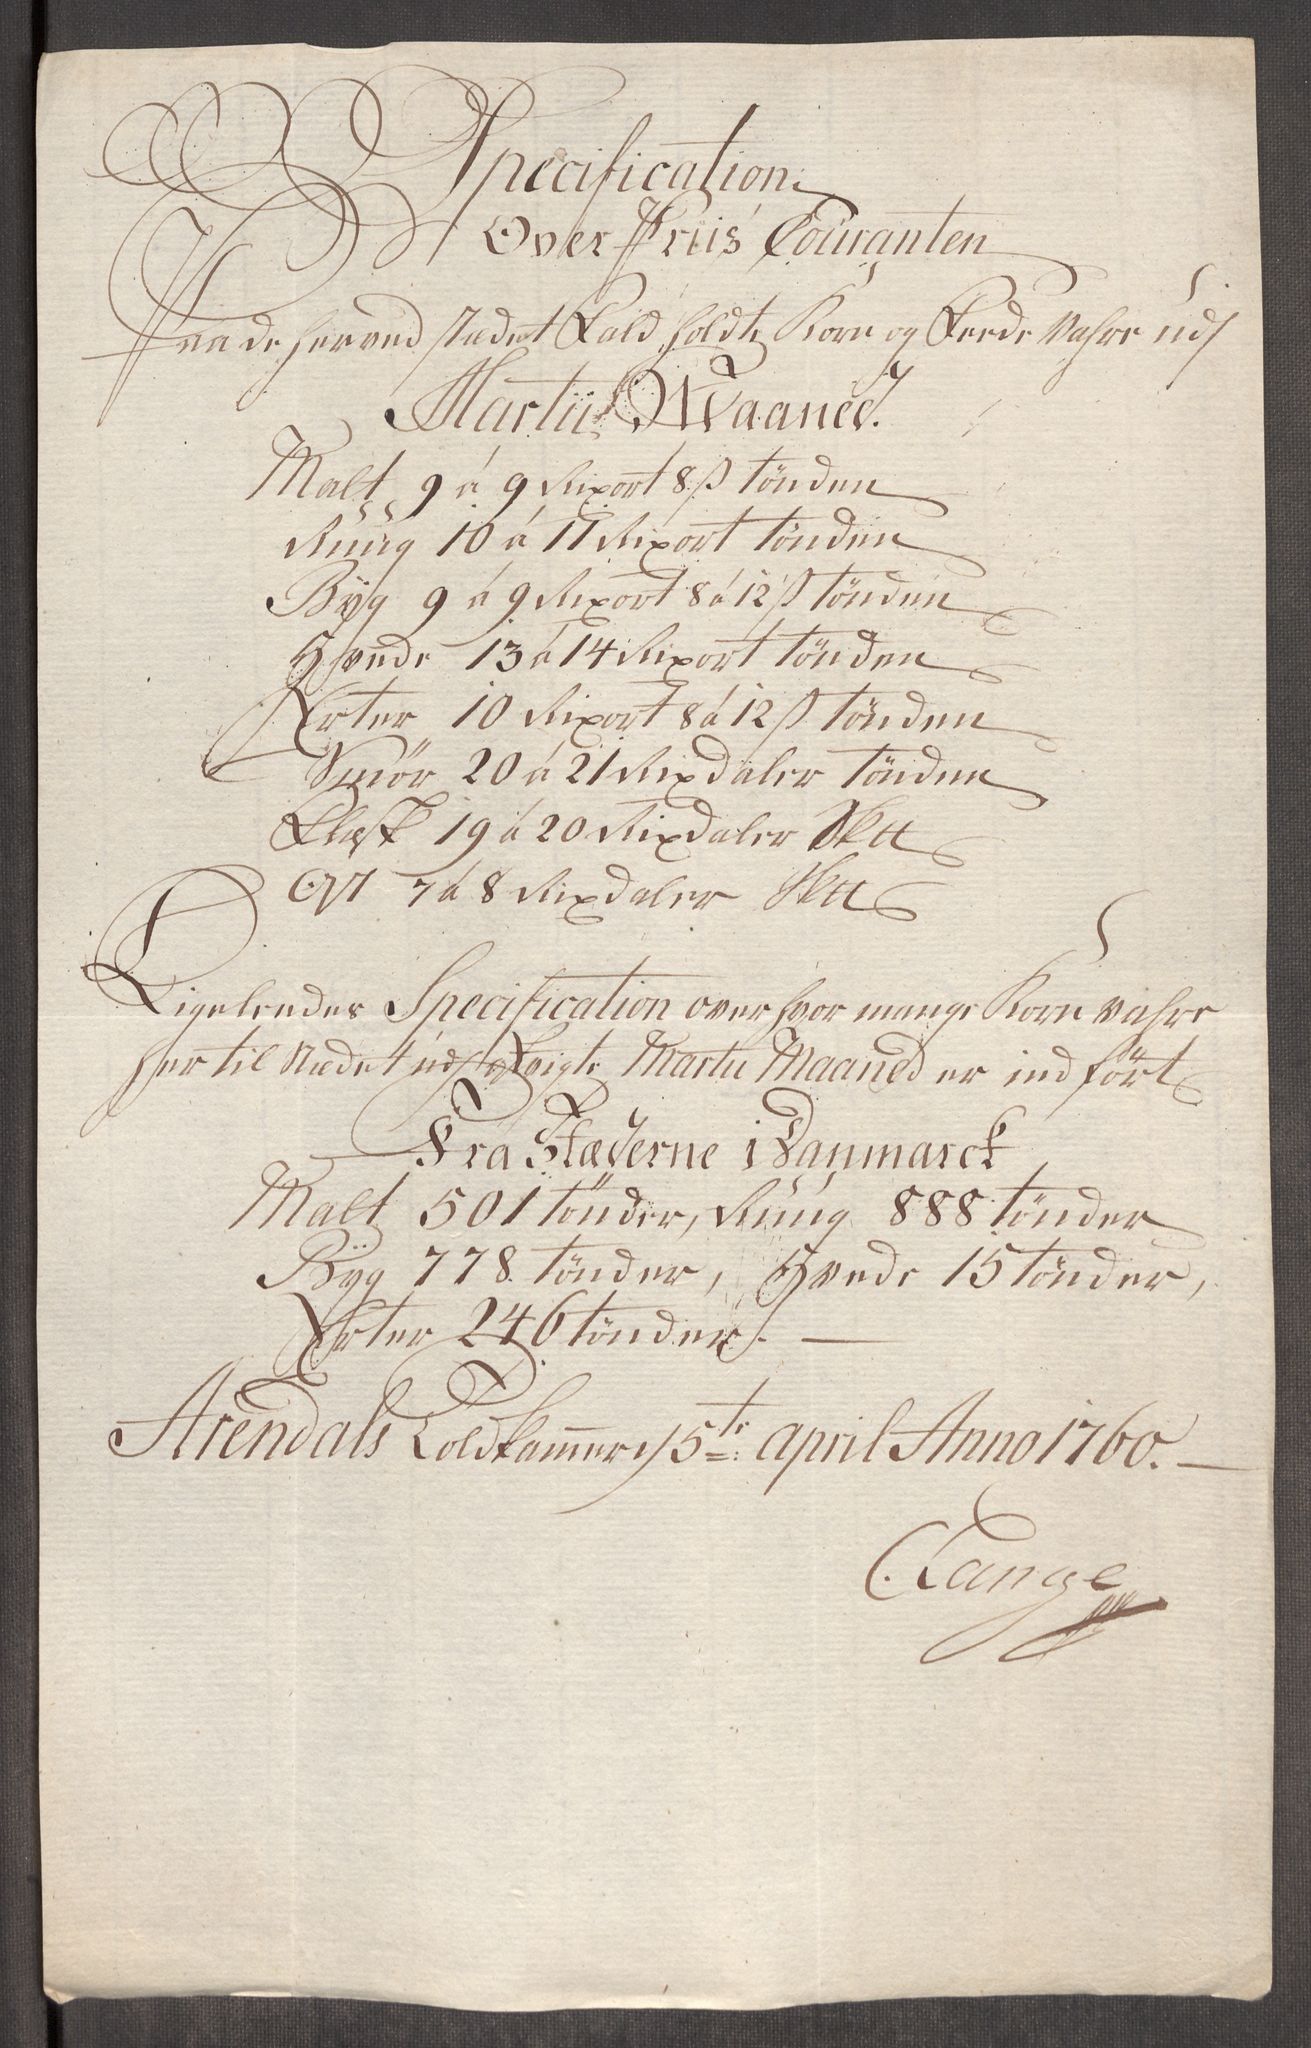 Specification
Over Priis Couranten
Paa de her ved stædet Fald holdte Korn og Feede Vahre udj
Martii Maaned.
Malt 9 à 9 Rixort 8 ß tønden
Rüüg 10 à 11 Rixort tønden
Byg 9 à 9 Rixort 8 à 12 ß tønden
Hvede 13 à 14 Rixort tønden
Erter 10 Rixort 8 à 12 ß tønden
Smör 20 à 21 Rixdaler tønden
Flæsk 19 à 20 Rixdaler Sktt
Ost 7 à 8 Rixdaler Sktt
Ligeleedes Specification over hvor mange Korn vahre
her til stædet udj Martii Maaned er indført
Fra Stæderne i Danmarck
Malt 501 tönder, Rüüg 888 tønder
Byg 778 tønder, Hvede 15 tønder,
Erter 246 tønder. —
Arendals Toldkammer 5te: April Anno 1760. —
C. Lange